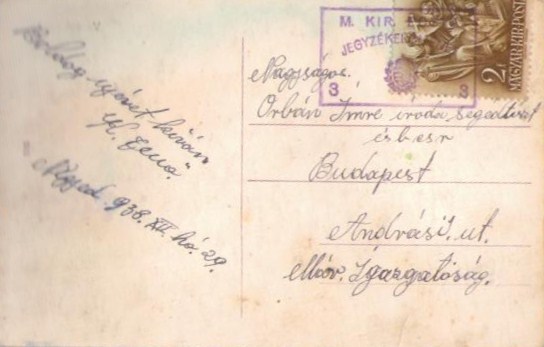 Boldog újévet kíván
K. Ilona.
Negyed. 938. XII. hó. 29.
M. KIR.
JEGYZÉKE
3 3
2 f
MAGYAR KIR. POSTA
Nagyságos.
Orbán Imre iroda segédtiszt
és b. csr
Budapest
Andrási. ut.
Máv. Igazgatóság.